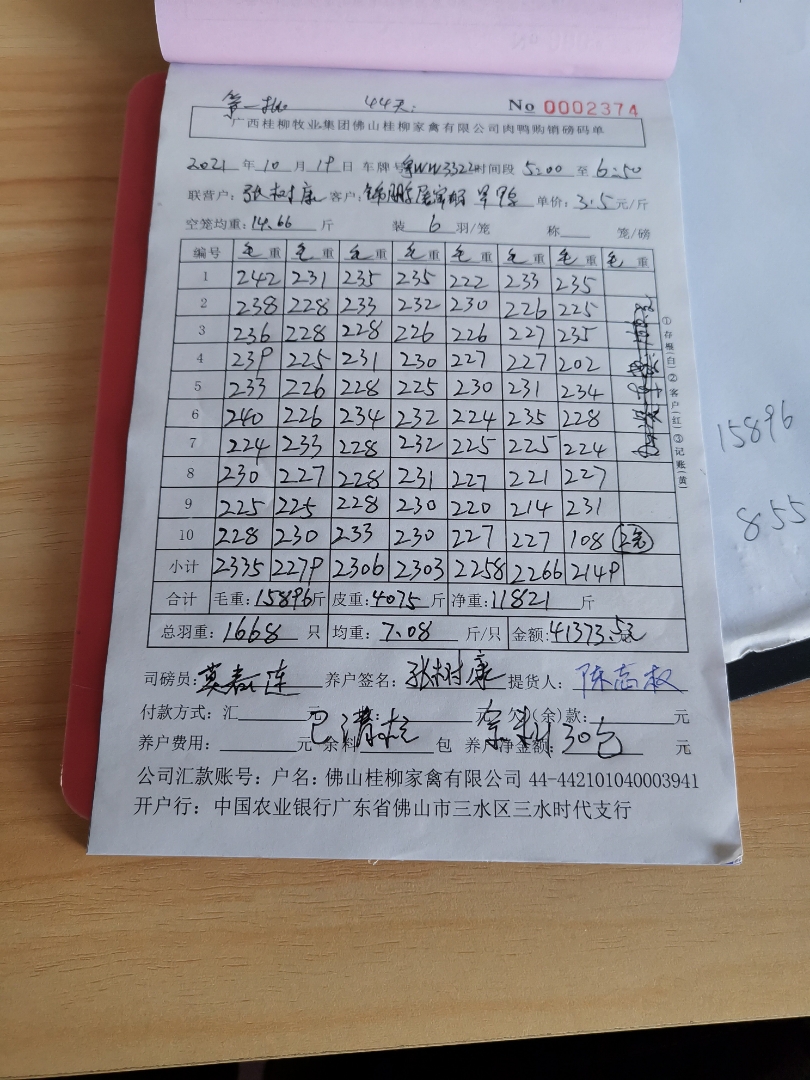 第一批 44天. No 0002374
广西桂柳牧业集团佛山桂柳家禽有限公司肉鸭购销磅码单
2021 年 10 月 19 日 车牌号 粤WW3322 时间段 5:00 至 6:50
联营户: 张树康 客户: 锦鹏屠宰场 单价: 3.5 元/斤
空笼均重: 14.66 斤 装 6 羽/笼 称 笼/磅
编号 毛重 毛重 毛重 毛重 毛重 毛重 毛重 毛重
1 242 231 235 235 222 233 235
2 238 228 233 232 230 226 225
3 236 228 228 226 226 227 235
4 239 225 231 230 227 227 202
5 233 226 228 225 230 231 234
6 240 226 234 232 224 235 228
7 224 233 228 232 225 225 224
8 230 227 228 231 227 221 227
9 225 225 228 230 220 214 231
10 228 230 233 230 227 227 108
小计 2335 2279 2306 2303 2258 2266 2149
合计 毛重: 15896 斤 皮重: 4075 斤 净重: 11821 斤
总羽重: 1668 只 均重: 7.08 斤/只 金额: 41373.5元
司磅员: 莫 连 养户签名: 张树康 提货人: 陈志权
付款方式: 汇 元 元 欠(余)款: 元
养户费用: 元 余料 包 养户净金额: 元
已清 余料30包
公司汇款账号: 户名: 佛山桂柳家禽有限公司 44-442101040003941
开户行: 中国农业银行广东省佛山市三水区三水时代支行
①存根(白)②客户(红)③记账(黄)
15896
855